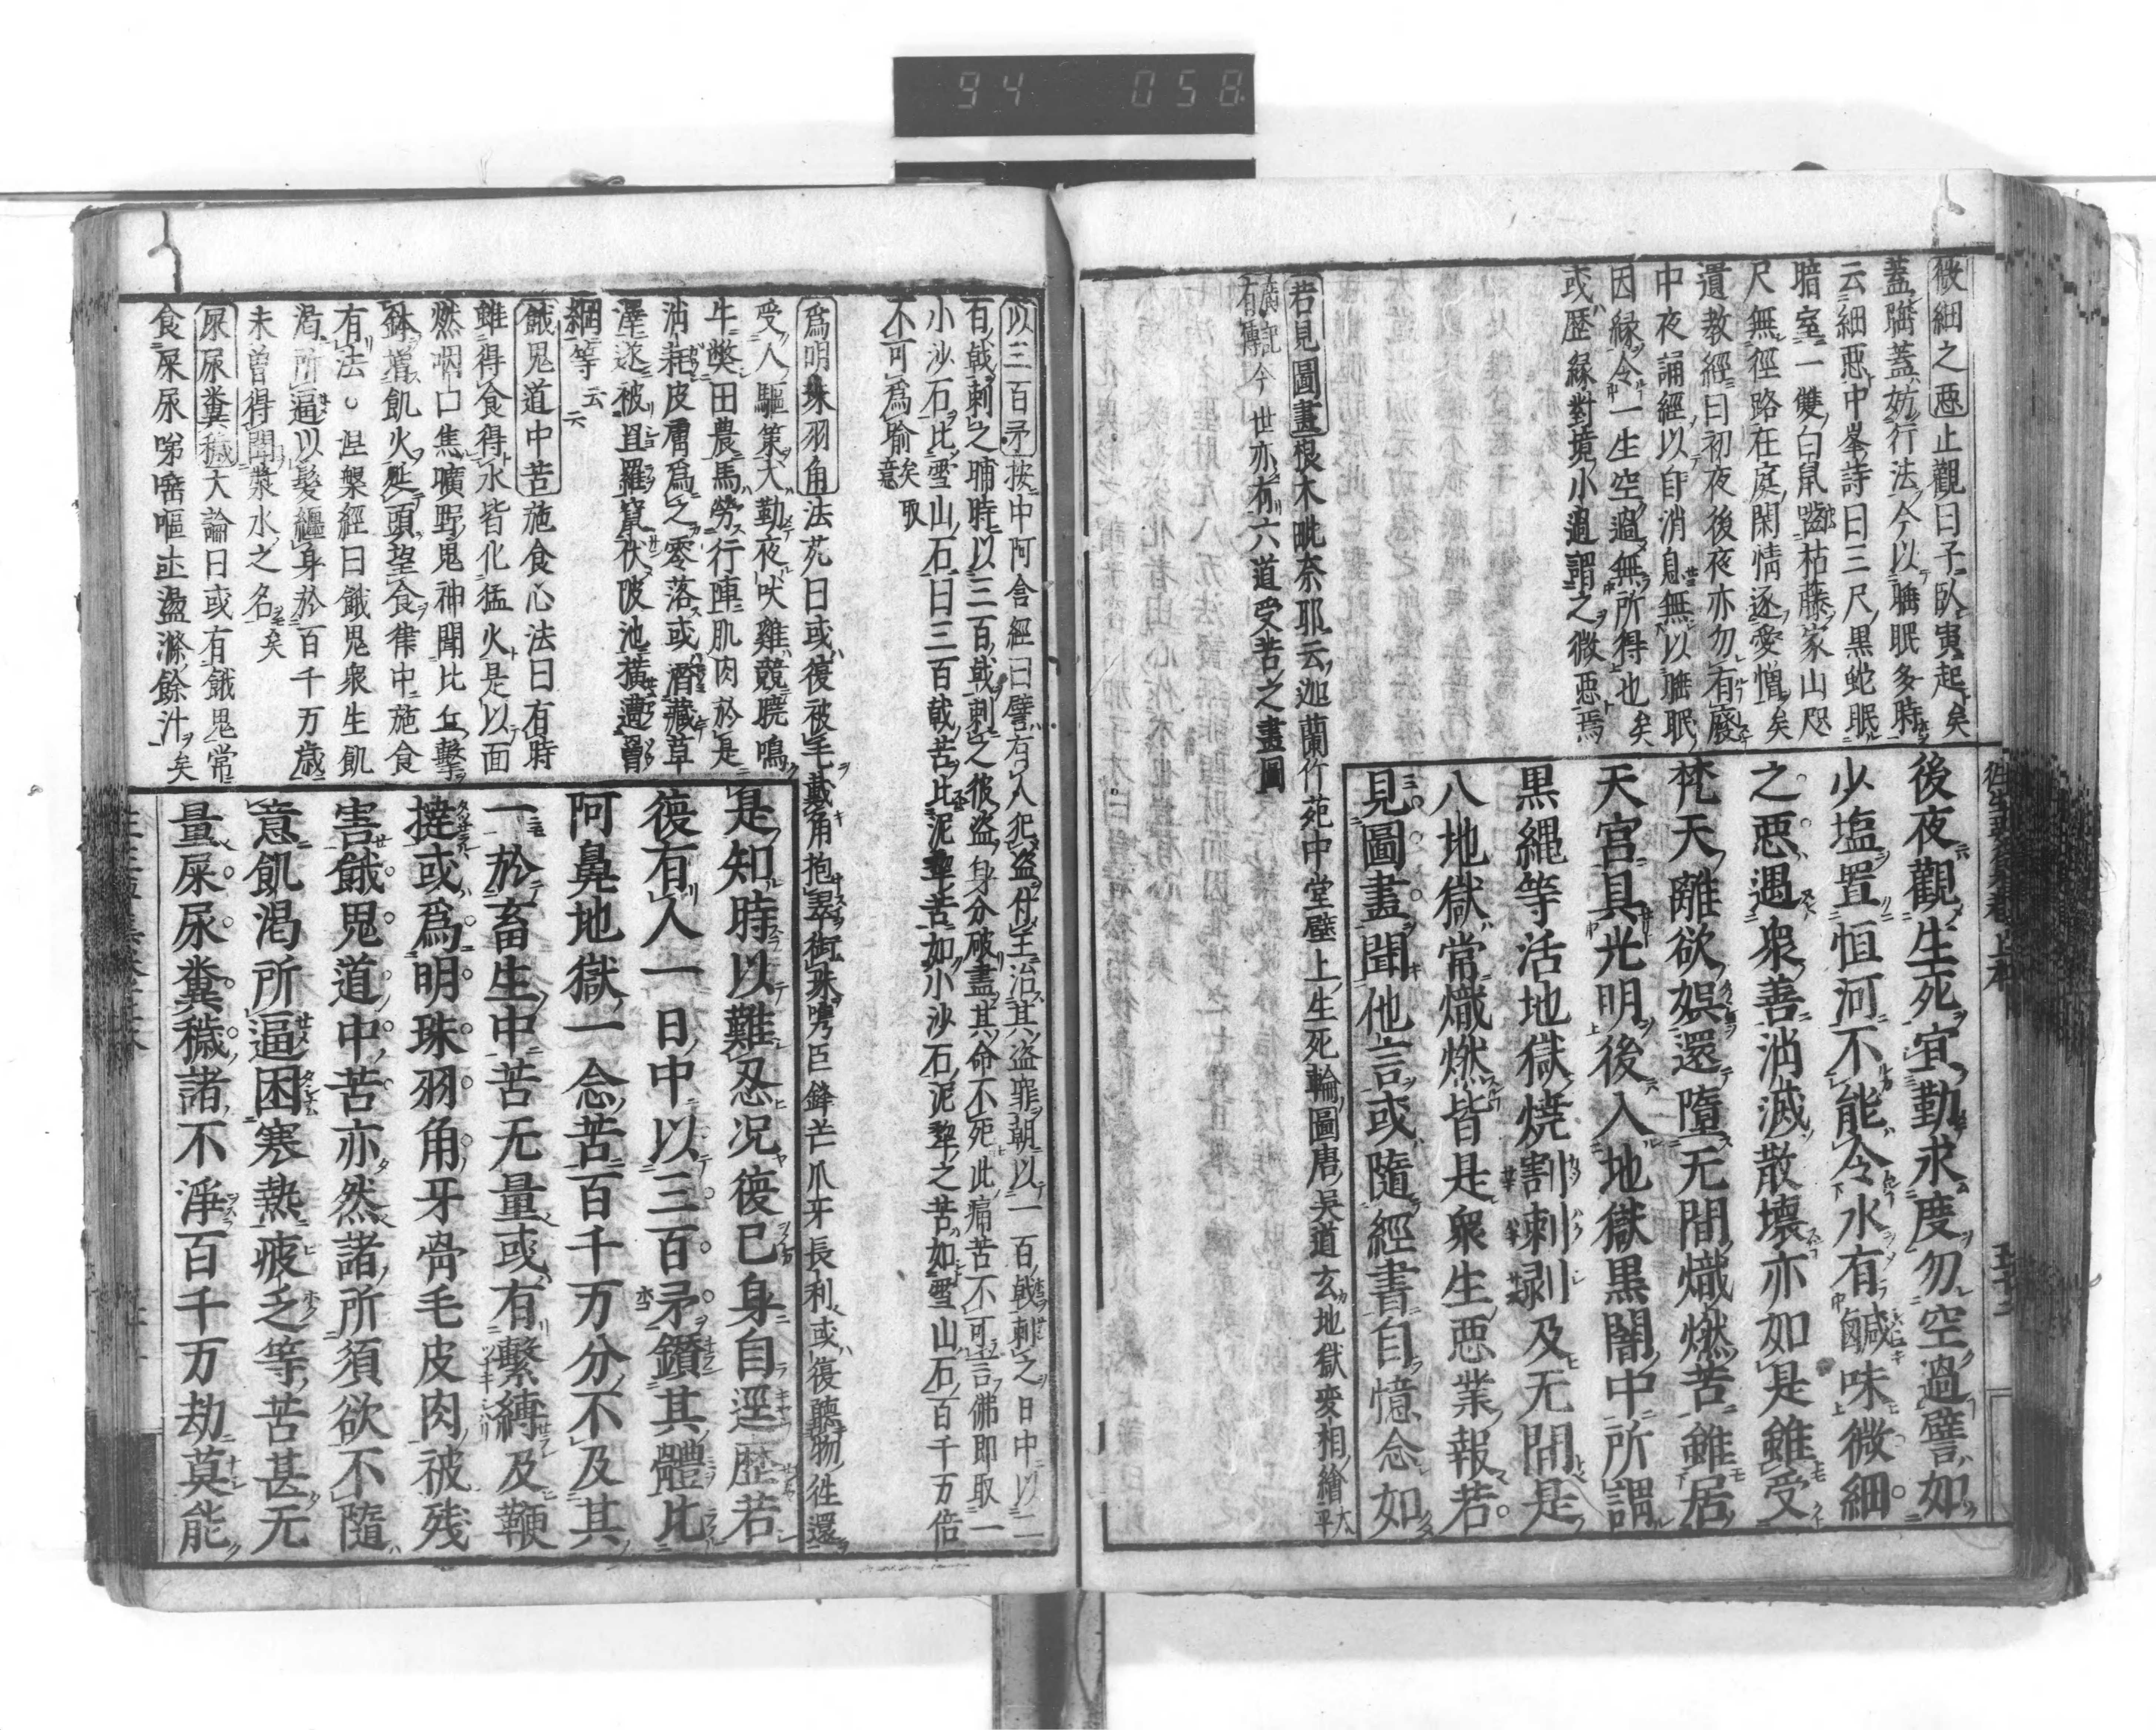 94 058
微細之惡止觀曰子臥寅起矣
蓋聯蓋妨行法今以睡眠多時
云細惡中峯詩曰三尺黒蛇眠
暗室一雙白鼠囓枯藤家山咫
尺無徑路在庭閑情逐愛憎矣
遺教經曰初夜後夜亦勿有廢
中夜誦經以自消息無以睡眠
因縁令一生空過無所得也矣
或歴縁對境小過謂之微惡焉
後夜觀生死宜勤求度勿空過譬如
少塩置恒河不能令水有鹹味微細
之惡遇衆善消滅散壞亦如是雖受
梵天離欲娯還墮无間熾燃苦雖居
天宮具光明後入地獄黒闇中所謂
黒繩等活地獄焼割刺剥及无間是
八地獄常熾燃皆是衆生惡業報若
見圖畫聞他言或隨經書自憶念如
若見圖畫根本毗奈耶云迦蘭竹苑中堂壁上生死輪圖唐吳道玄地獄変相繪太平
廣記有傳今世亦有六道受苦之畫圖
以三百矛按中阿含經曰譬有人犯盗付王治其盗罪朝以一百戟刺之日中以二
百戟刺之晡時以三百戟刺之彼盗身分破盡其命不死此痛苦不可言佛即取一
小沙石比雪山石曰三百戟苦比泥犂苦如小沙石泥犂之苦如雪山石百千万倍
不可爲喩矣取意
爲明珠羽角法苑曰或復被毛戴角抱翠銜珠嘴巨鋒芒爪牙長利或復聽物往還
受人驅策犬勤夜吠雞競曉鳴
牛弊田農馬勞行陣肌肉於是
消耗皮膚爲之零落或潛藏草
澤遂被罝羅竄伏陂池橫遭罾
網等云云
餓鬼道中苦施食心法曰有時
雖得食得水皆化猛火是以面
燃咽口焦曠野鬼神聞比丘擊
鉢增飢火延頭望食律中施食
有法涅槃經曰餓鬼衆生飢
渇所逼以髮纏身於百千万歳
未曽得聞漿水之名矣
屎尿糞穢大論曰或有餓鬼常
食屎尿唏唾嘔吐盪滌餘汁矣
是知時以難忍况復已身自逕歴若
復有人一日中以三百矛鑽其體比
阿鼻地獄一念苦百千万分不及其
一於畜生中苦无量或有繫縛及鞭
撻或爲明珠羽角牙骨毛皮肉被残
害餓鬼道中苦亦然諸所須欲不隨
意飢渇所逼困寒熱疲乏等苦甚无
量屎尿糞穢諸不淨百千万劫莫能